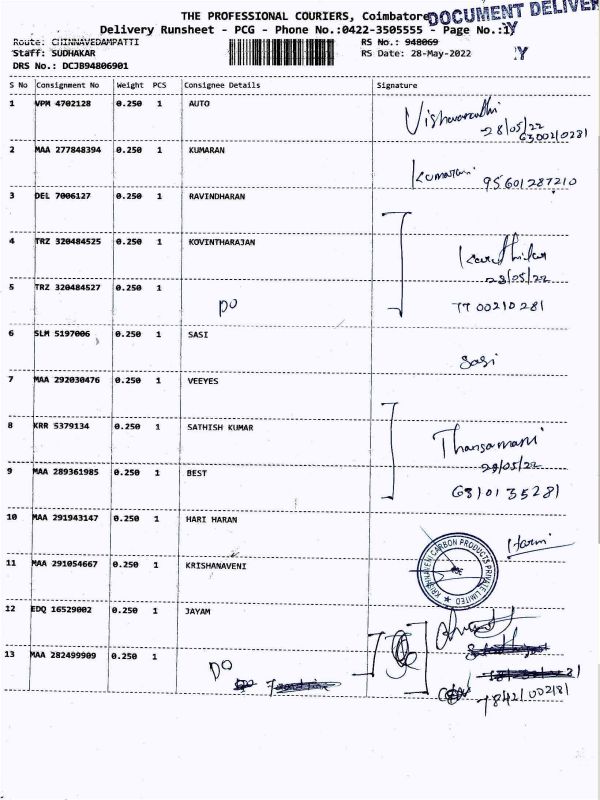 THE PROFESSIONAL COURIERS, Coimbatore
DOCUMENT DELIVER
Delivery Runsheet - PCG - Phone No.:0422-3505555 - Page No.:1
Route: CHINNAVEDAMPATTI RS No.: 948069
Staff: SUDHAKAR RS Date: 28-May-2022
DRS No.: DCJB94806901
S No Consignment No Weight PCS Consignee Details Signature
1 VPM 4702128 0.250 1 AUTO
28/05/22
2 MAA 277848394 0.250 1 KUMARAN
Kumaran
95601287210
3 DEL 7006127 0.250 1 RAVINDHARAN
4 TRZ 320484525 0.250 1 KOVINTHARAJAN
28/05/22
5 TRZ 320484527 0.250 1 DO 7700210281
6 SLM 5197006 0.250 1 SASI
Sasi
7 MAA 292030476 0.250 1 VEEYES
8 KRR 5379134 0.250 1 SATHISH KUMAR
Thangamani
28/05/22
9 MAA 289361985 0.250 1 BEST
6810135281
10 MAA 291943147 0.250 1 HARI HARAN
KRISHNAVENI CARBON PRODUCTS PRIVATE LIMITED
11 MAA 291054667 0.250 1 KRISHANAVENI
12 EDQ 16529002 0.250 1 JAYAM
13 MAA 282499909 0.250 1 DO